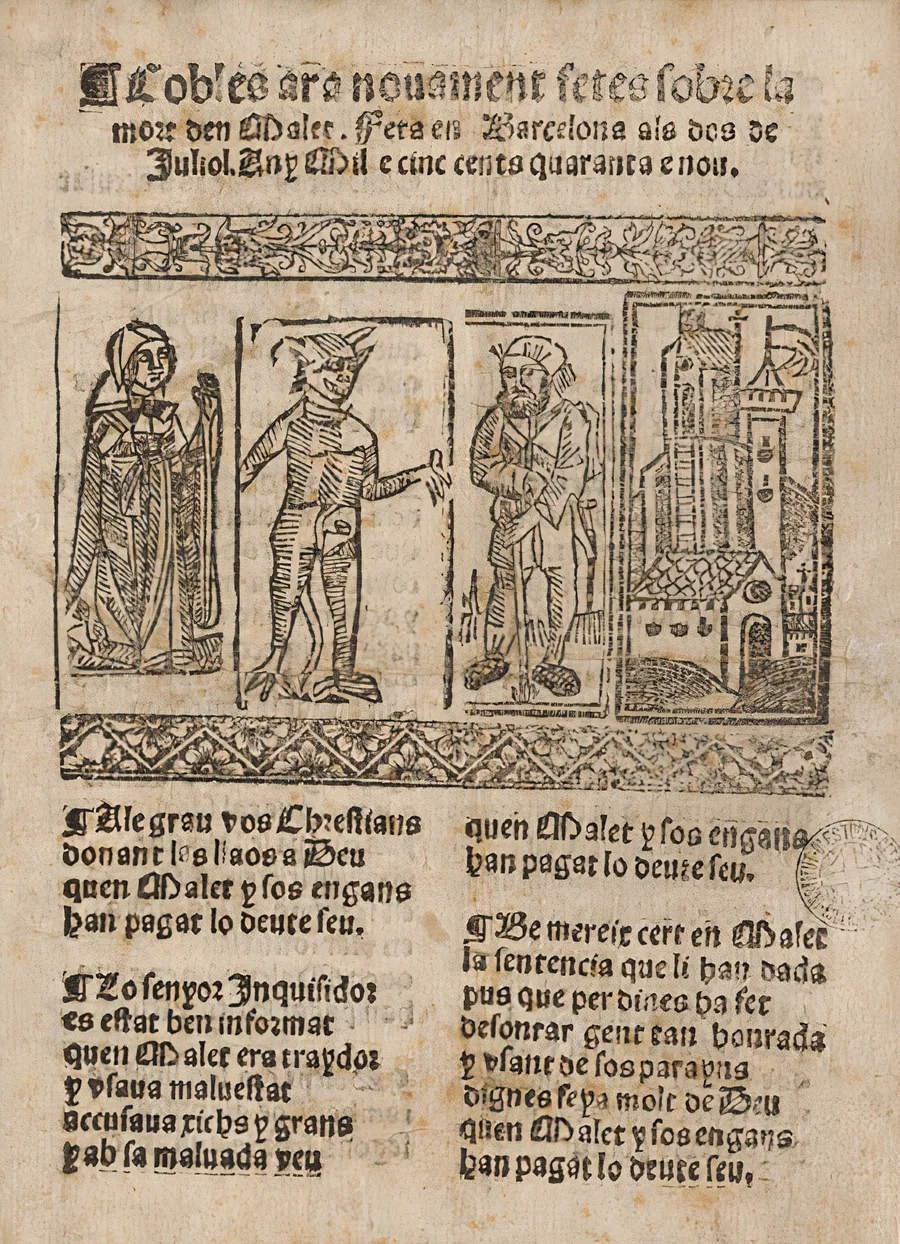 ¶ Cobles ara nouament fetes sobre la
mort den Malet. Feta en Barcelona als dos de
Juliol. Any Mil e cinc cents quaranta e nou.
¶ Alegrau vos Chrestians
donant les llaos a Deu
quen Malet y sos engans
han pagat lo deute seu.
¶ Lo senyor Inquisidor
es estat ben informat
quen Malet era traydor
y vsaua maluestat
accusaua richs y grans
y ab sa maluada veu
quen Malet y sos engans
han pagat lo deute seu.
¶ Be mereix cert en Malet
la sentencia que li han dada
pus que per dines ha fet
desonrar gent tan honrada
y vsant de sos paranys
dignes feya molt de Deu
quen Malet y sos engans
han pagat lo deute seu.